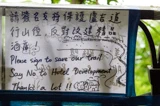 請簽名支持保護盧吉道
行山徑，反對改建精品
酒店！
Please sign to save our trail
Say No to Hotel Development
Thanks a lot !!